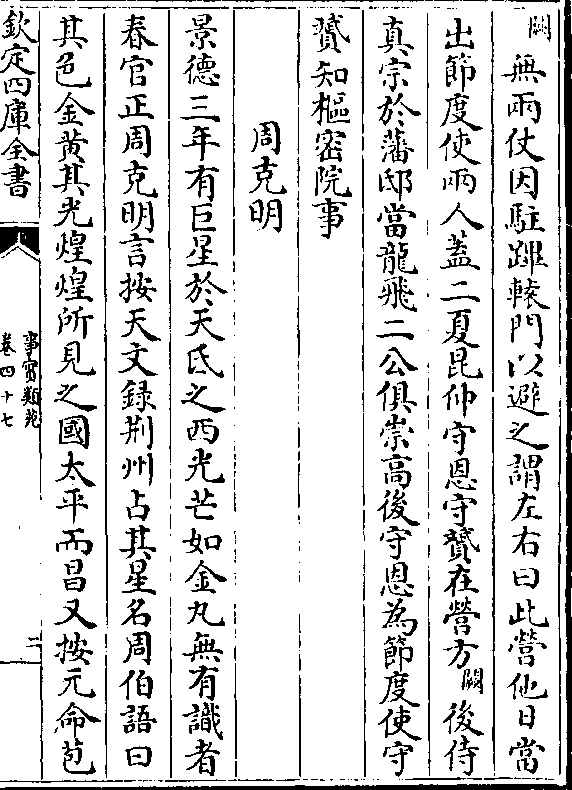 闕無兩仗因駐蹕轅門以避之謂左右曰此營他日當
出節度使兩人蓋二夏昆仲守恩守贇在營方闕後侍
真宗於藩邸當龍飛二公俱崇高後守恩為節度使守
贇知樞密院事
周克明
景德三年有巨星於天氐之西光芒如金丸無有識者
春官正周克明言按天文録荆州占其星名周伯語曰
其色金黄其光煌煌所見之國太平而昌又按元命苞
欽定四庫全書
事實類苑
卷四十七
二